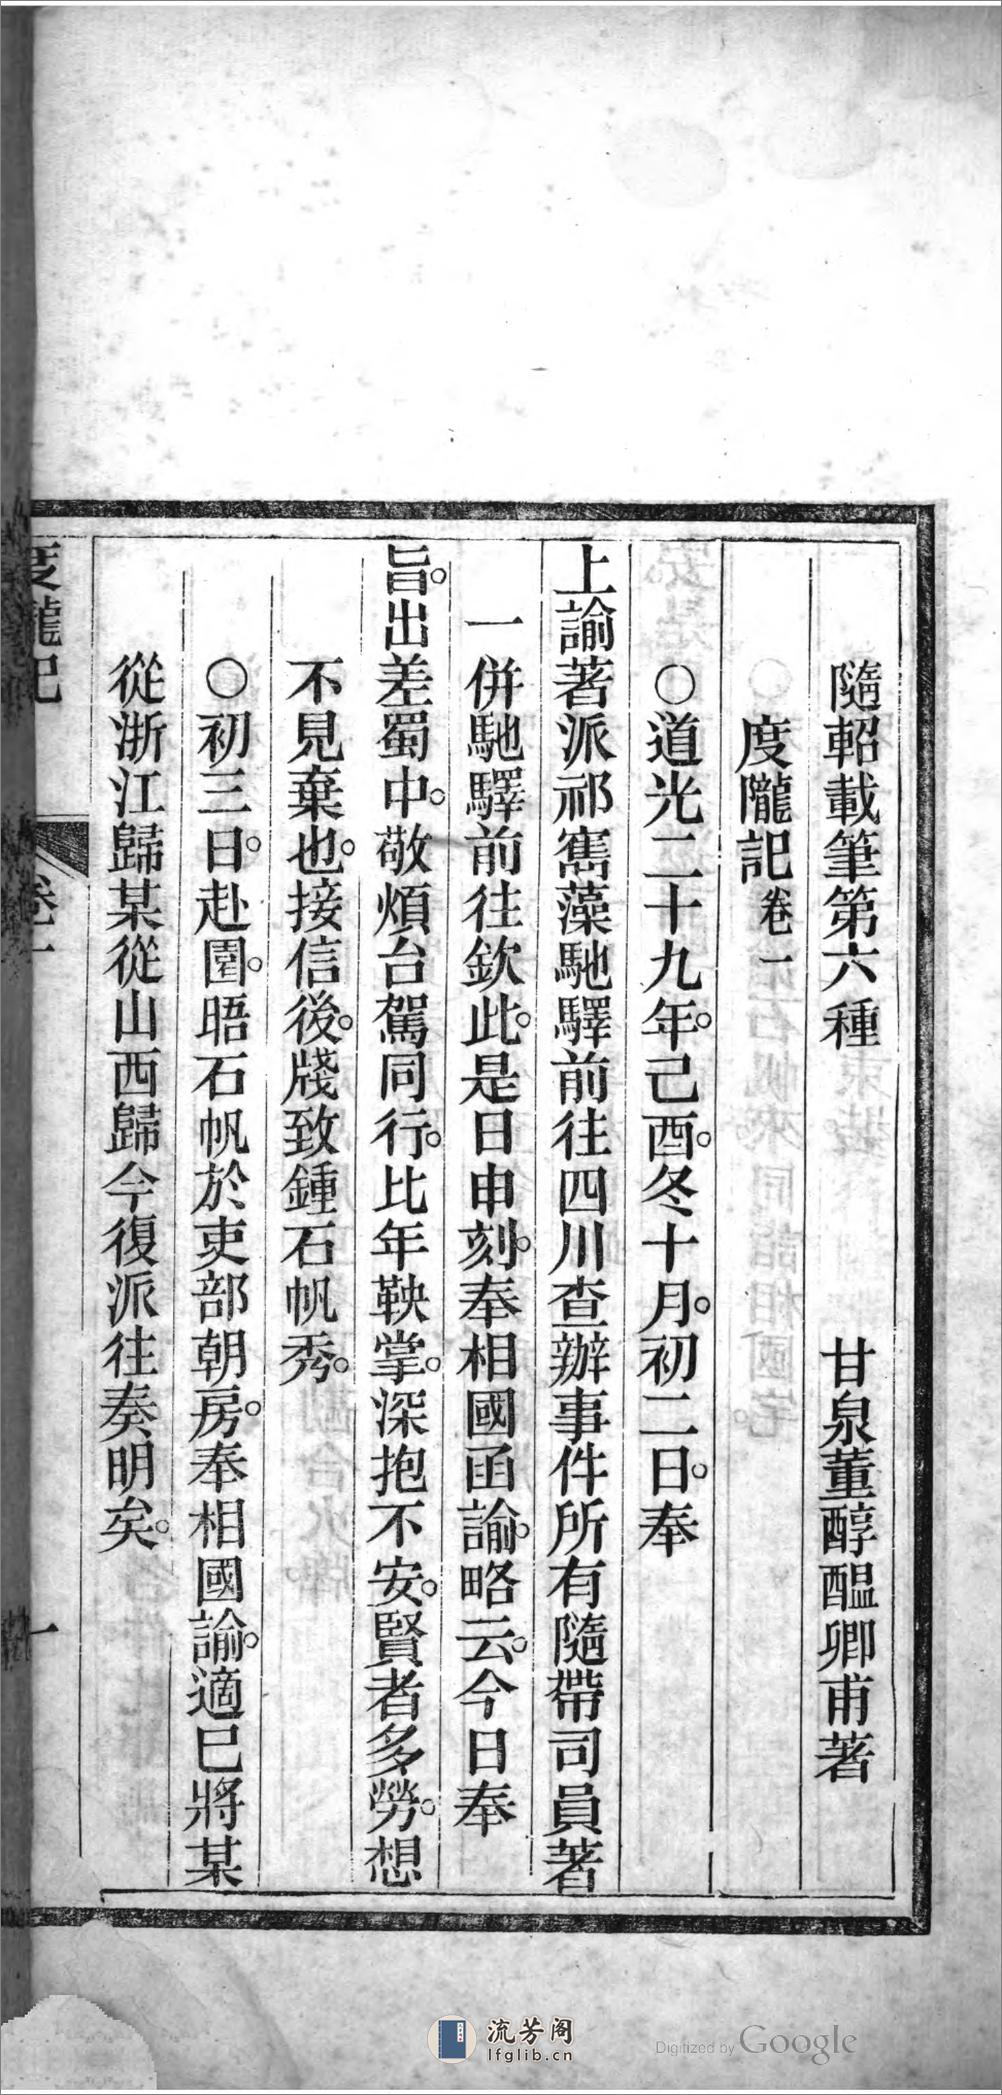 隨軺載筆第六種　甘泉董醇醞卿甫著
度隴記卷一
○道光二十九年。己酉。冬十月。初二日。奉
上諭著派祁寯藻馳驛前往四川查辦事件所有隨帶司員著
一併馳驛前往欽此。是日申刻。奉相國函諭。略云。今日奉
旨。出差蜀中。敬煩台駕同行。比年鞅掌。深抱不安。賢者多勞。想
不見棄也。接信後。牋致鍾石帆秀。
○初三日。赴園。晤石帆於吏部朝房。奉相國諭。適巳將某
從浙江歸某從山西歸今復派往奏明矣。
度隴記
卷一
一
流芳阁
lfglib.cn
Digitized by Google